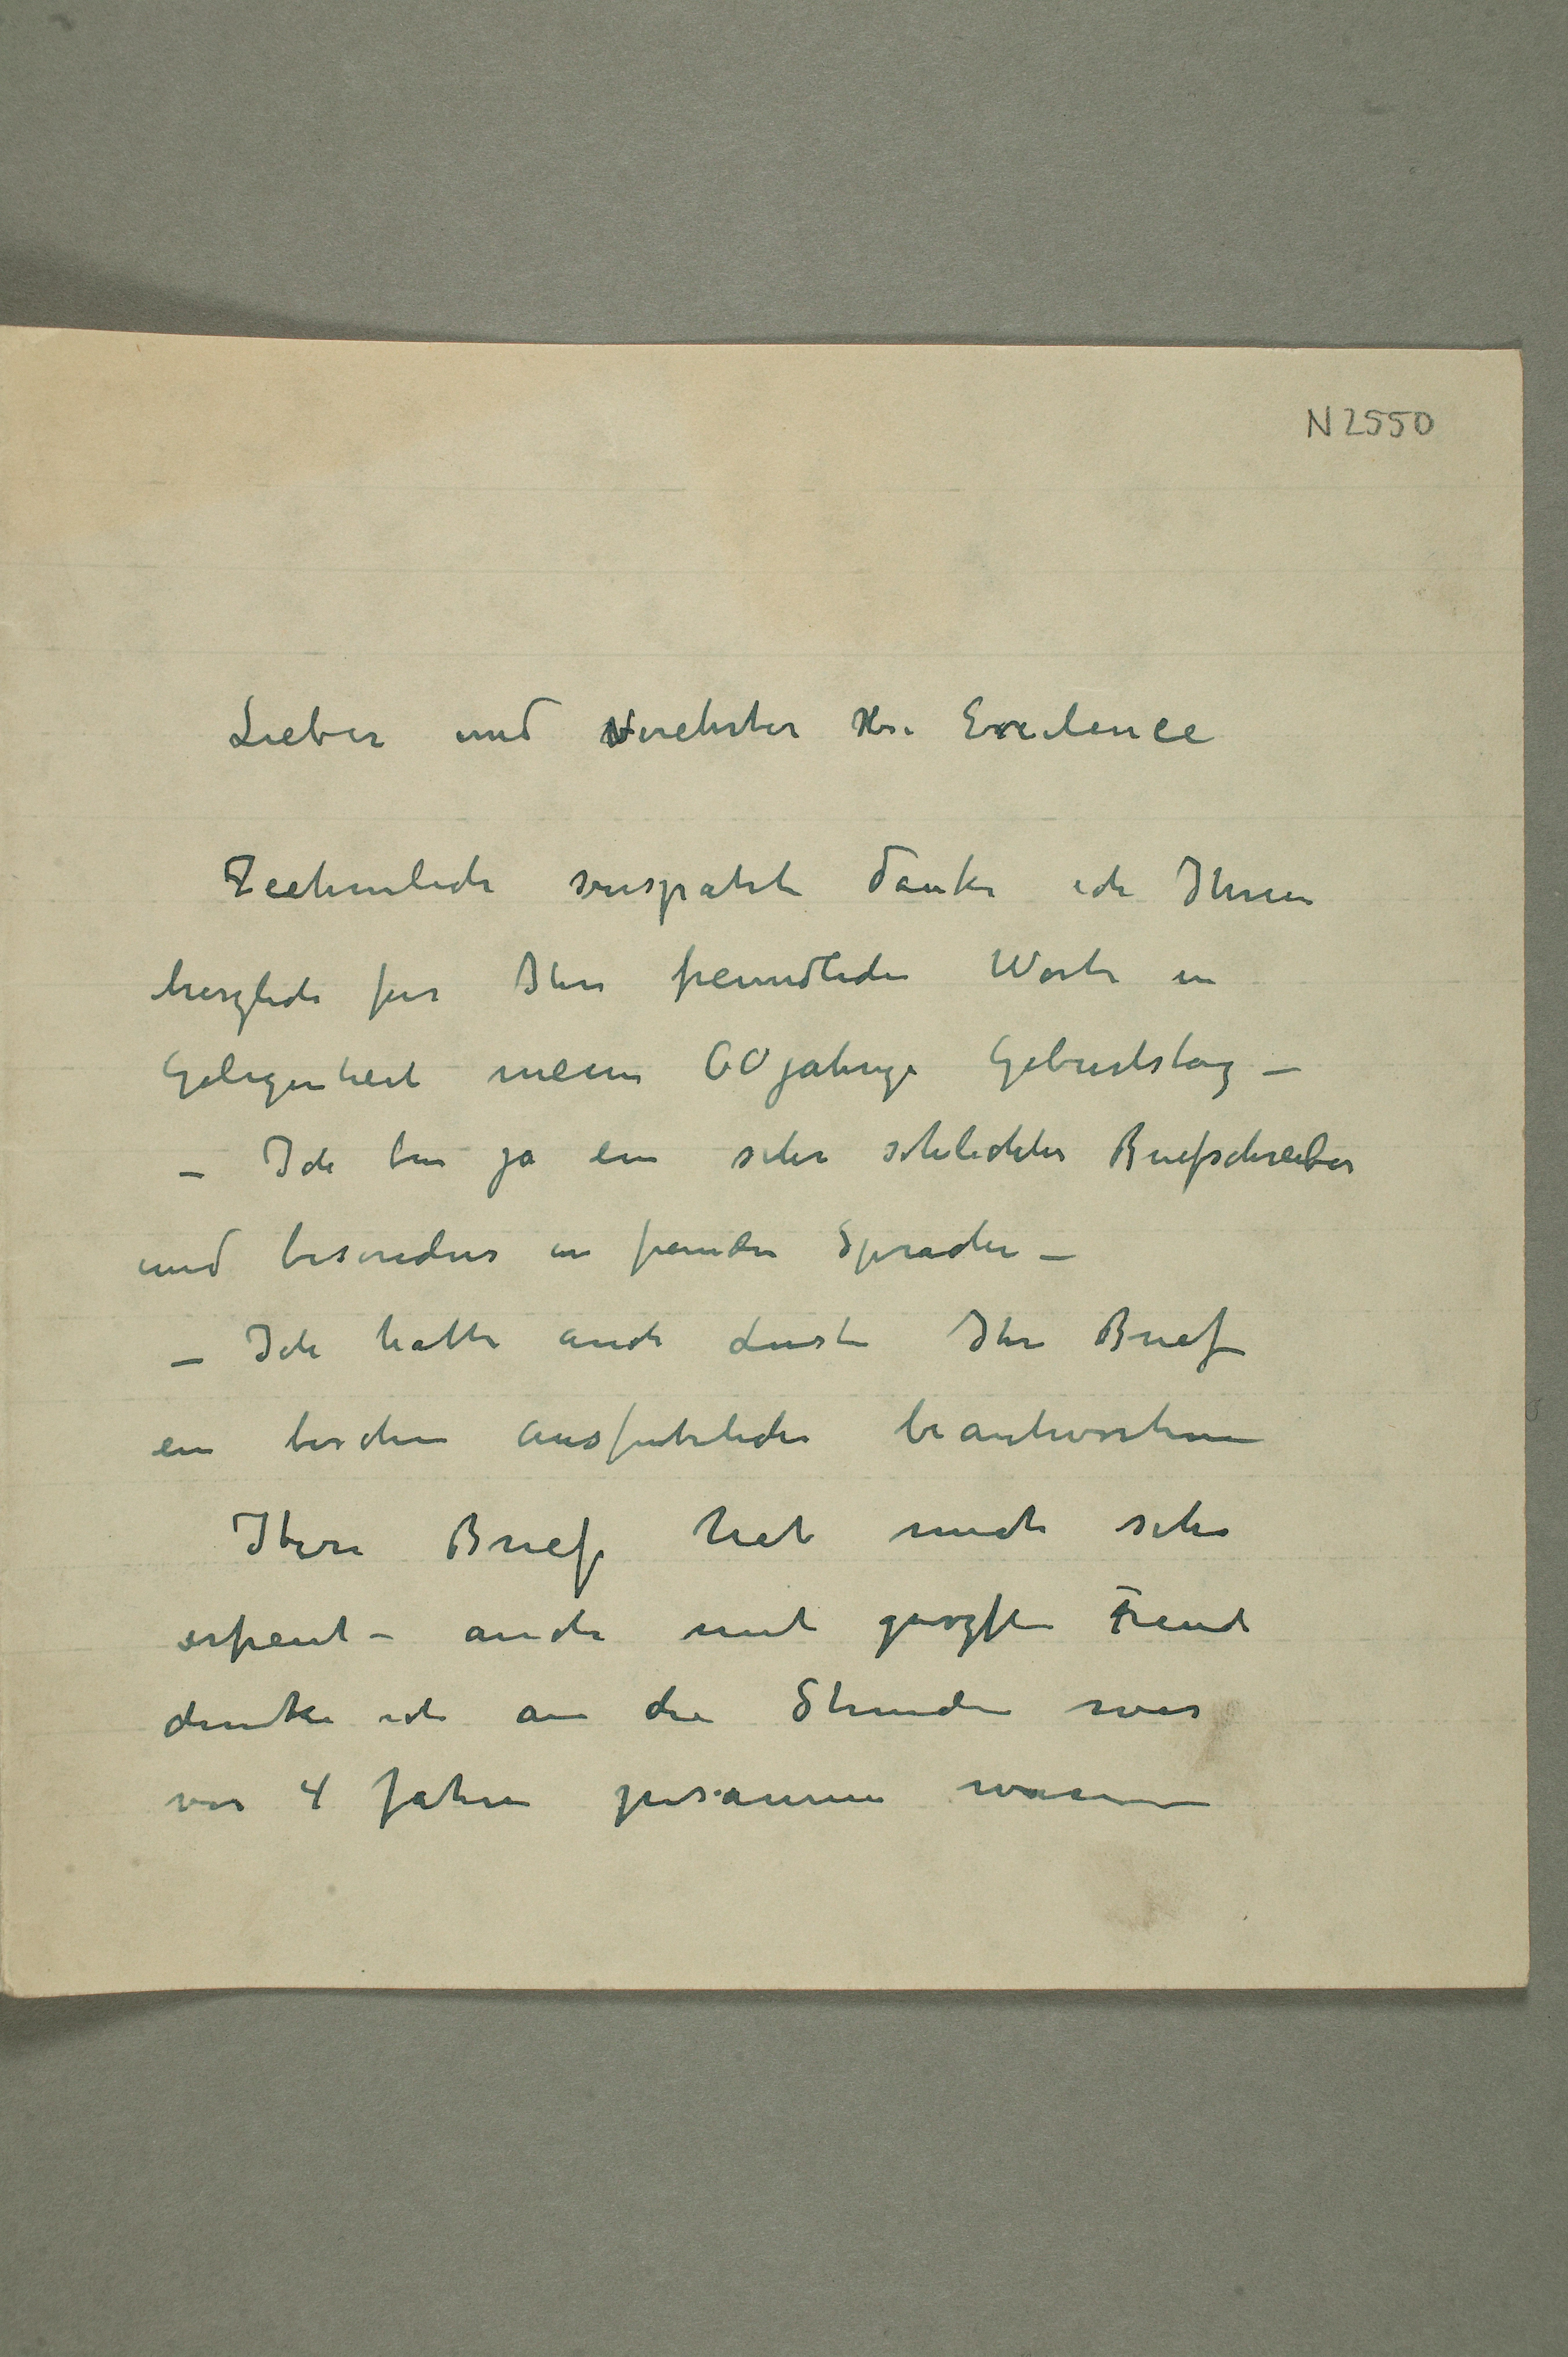 N 2550
Lieber und Verehrter Hr. Exelence
Ziehmlich verspätet danke ich Ihnen
herzlich für Ihre freundliche Worte in
Gelegenheit meine 60 jahrige Geburtstag –
– Ich bin ja ein sehr schlechter Briefschreiber
und besonders in fremde Sprache –
– Ich hatte auch Luste Ihre Brief
ein bischen ausfuhrliche beantworten
Ihre Brief hat mich sehr
erfreut – auch mit Freude
denke ich an die Stunden wir
vor 4 Jahren zusammen waren